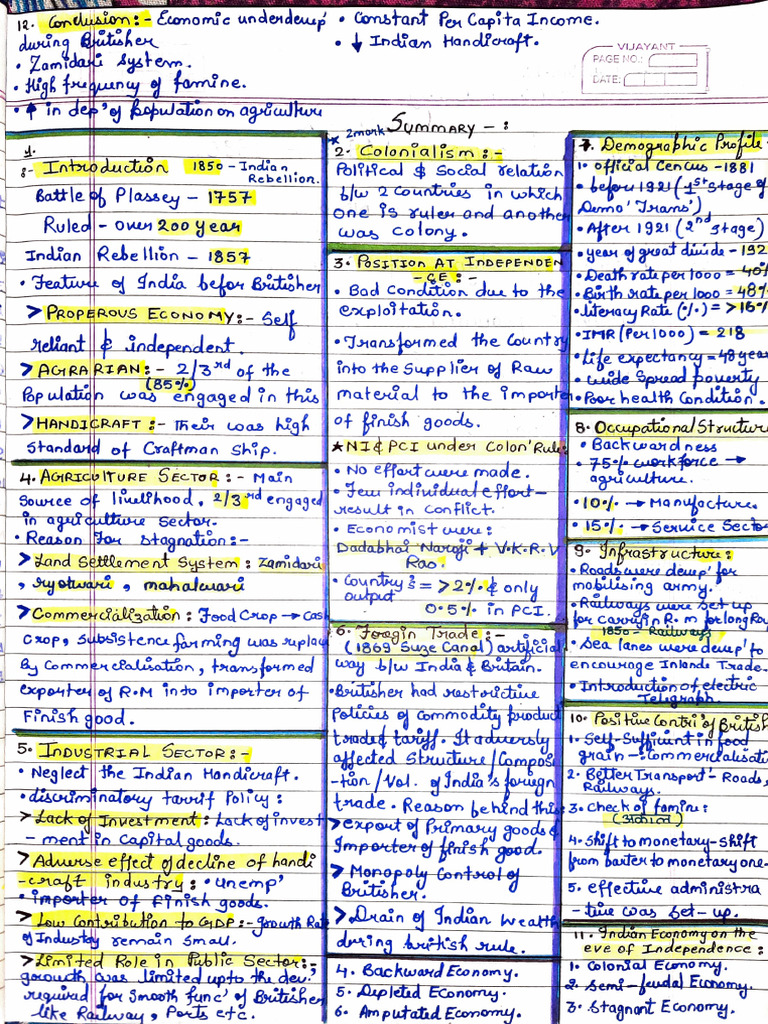 12. Conclusion:- Economic underdeup'
during Britisher
• Zamidari System.
• High frequency of famine.
• ↑ in dep' of population on agriculture
• Constant Per Capita Income.
• ↓ Indian Handicraft.
VIJAYANT
PAGE NO.:
DATE:
SUMMARY -:
1.
:- Introduction 1850 - Indian
Rebellion.
Battle of Plassey - 1757
Ruled - over 200 year
Indian Rebellion - 1857
• Feature of India befor Britisher
> PROPEROUS ECONOMY:- Self
reliant & independent.
> AGRARIAN:- 2/3rd of the
(85%)
Population was engaged in this
> HANDICRAFT:- Their was high
Standard of Craftman Ship.
4. AGRICULTURE SECTOR:- Main
Source of livelihood, 2/3rd engaged
in agriculture sector.
• Reason For stagnation:-
> Land Settlement System: Zamidari
, ryotwari, mahalwari
> Commercialization: Food Crop → Cash
Crop, Subsistence farming was replac
By Commercialisation, transformed
exporter of R.M into importer of
Finish good.
5. INDUSTRIAL SECTOR:-
• Neglect the Indian Handicraft.
• discriminatory tarrif Policy:
> Lack of Investment: Lack of invest
-ment in Capital goods.
> Adverse effect of decline of handi
-craft industry: • unemp'
• importer of Finish goods.
> Low Contribution to GDP:- Growth Rate
of Industry remain Small.
> Limited Role in Public Sector:-
growth was limited upto the dev.'
required for Smooth func' of Britisher
like Railway, Ports etc.
* 2mark
2. Colonialism:-
Political & Social relation
b/w 2 Countries in which
one is ruler and another
was colony.
3. POSITION AT INDEPENDEN
-CE:-
• Bad Condition due to the
exploitation.
• Transformed the Country
into the Supplier of Raw
material to the importer
of finish goods.
★ NI & PCI under Colon' Rule:
• No effort were made.
• Few individual effort-
result in Conflict.
• Economist were:
Dadabhai Naroji & V.K.R.V
Rao.
• Country's = >2% & only
output 0.5% in PCI.
6. Foregin Trade:-
(1869 Suze Canal) artificial
way b/w India & Britain.
• Britisher had restrictive
Policies of commodity product
trade & tariff. It adversly
affected Structure/Compos
-tion/Vol. of India's foreign
trade. Reason behind this:
> Export of Primary goods &
Importer of finish good.
> Monopoly Control of
Britisher.
> Drain of Indian Wealth
during british rule.
4. Backward Economy.
5. Depleted Economy.
6. Amputated Economy.
7. Demographic Profile-
1. official Cencus - 1881
• before 1921 (1st stage of
Demo' Trans')
• After 1921 (2nd stage)
• year of great divide - 192
• Death rate per 1000 = 40%
• Birth rate per 1000 = 48%
• literacy Rate (%) = >16%
• IMR (Per 1000) = 218
• Life expectancy = 48 year
• wide Spread poverty
• Poor health Condition.
8. Occupational Structure
• Backwardness
• 75% workforce →
agriculture.
• 10% → Manufacture.
• 15% → Service Secto
9. Infrastructure:
• Roads were deup' for
mobilising army.
• Railways were set up
for carryin R.m for long Rou
1850 - Railways
• Sea lanes were deup' to
encourage Inlande Trade.
• Introduction of electric
Telgraph.
10. Positive Contri' of British
1. Self-Sufficient in food
grain -: Commercialisati
2. Better Transport - Roads,
Railways.
3. check of famin:
(अकाल)
4. Shift to monetary - shift
from barter to monetary one.
5. effective administra
-tive was set-up.
11. Indian Economy on the
eve of Independence:
1. Colonial Economy.
2. Semi-feudal Economy.
3. Stagnant Economy.